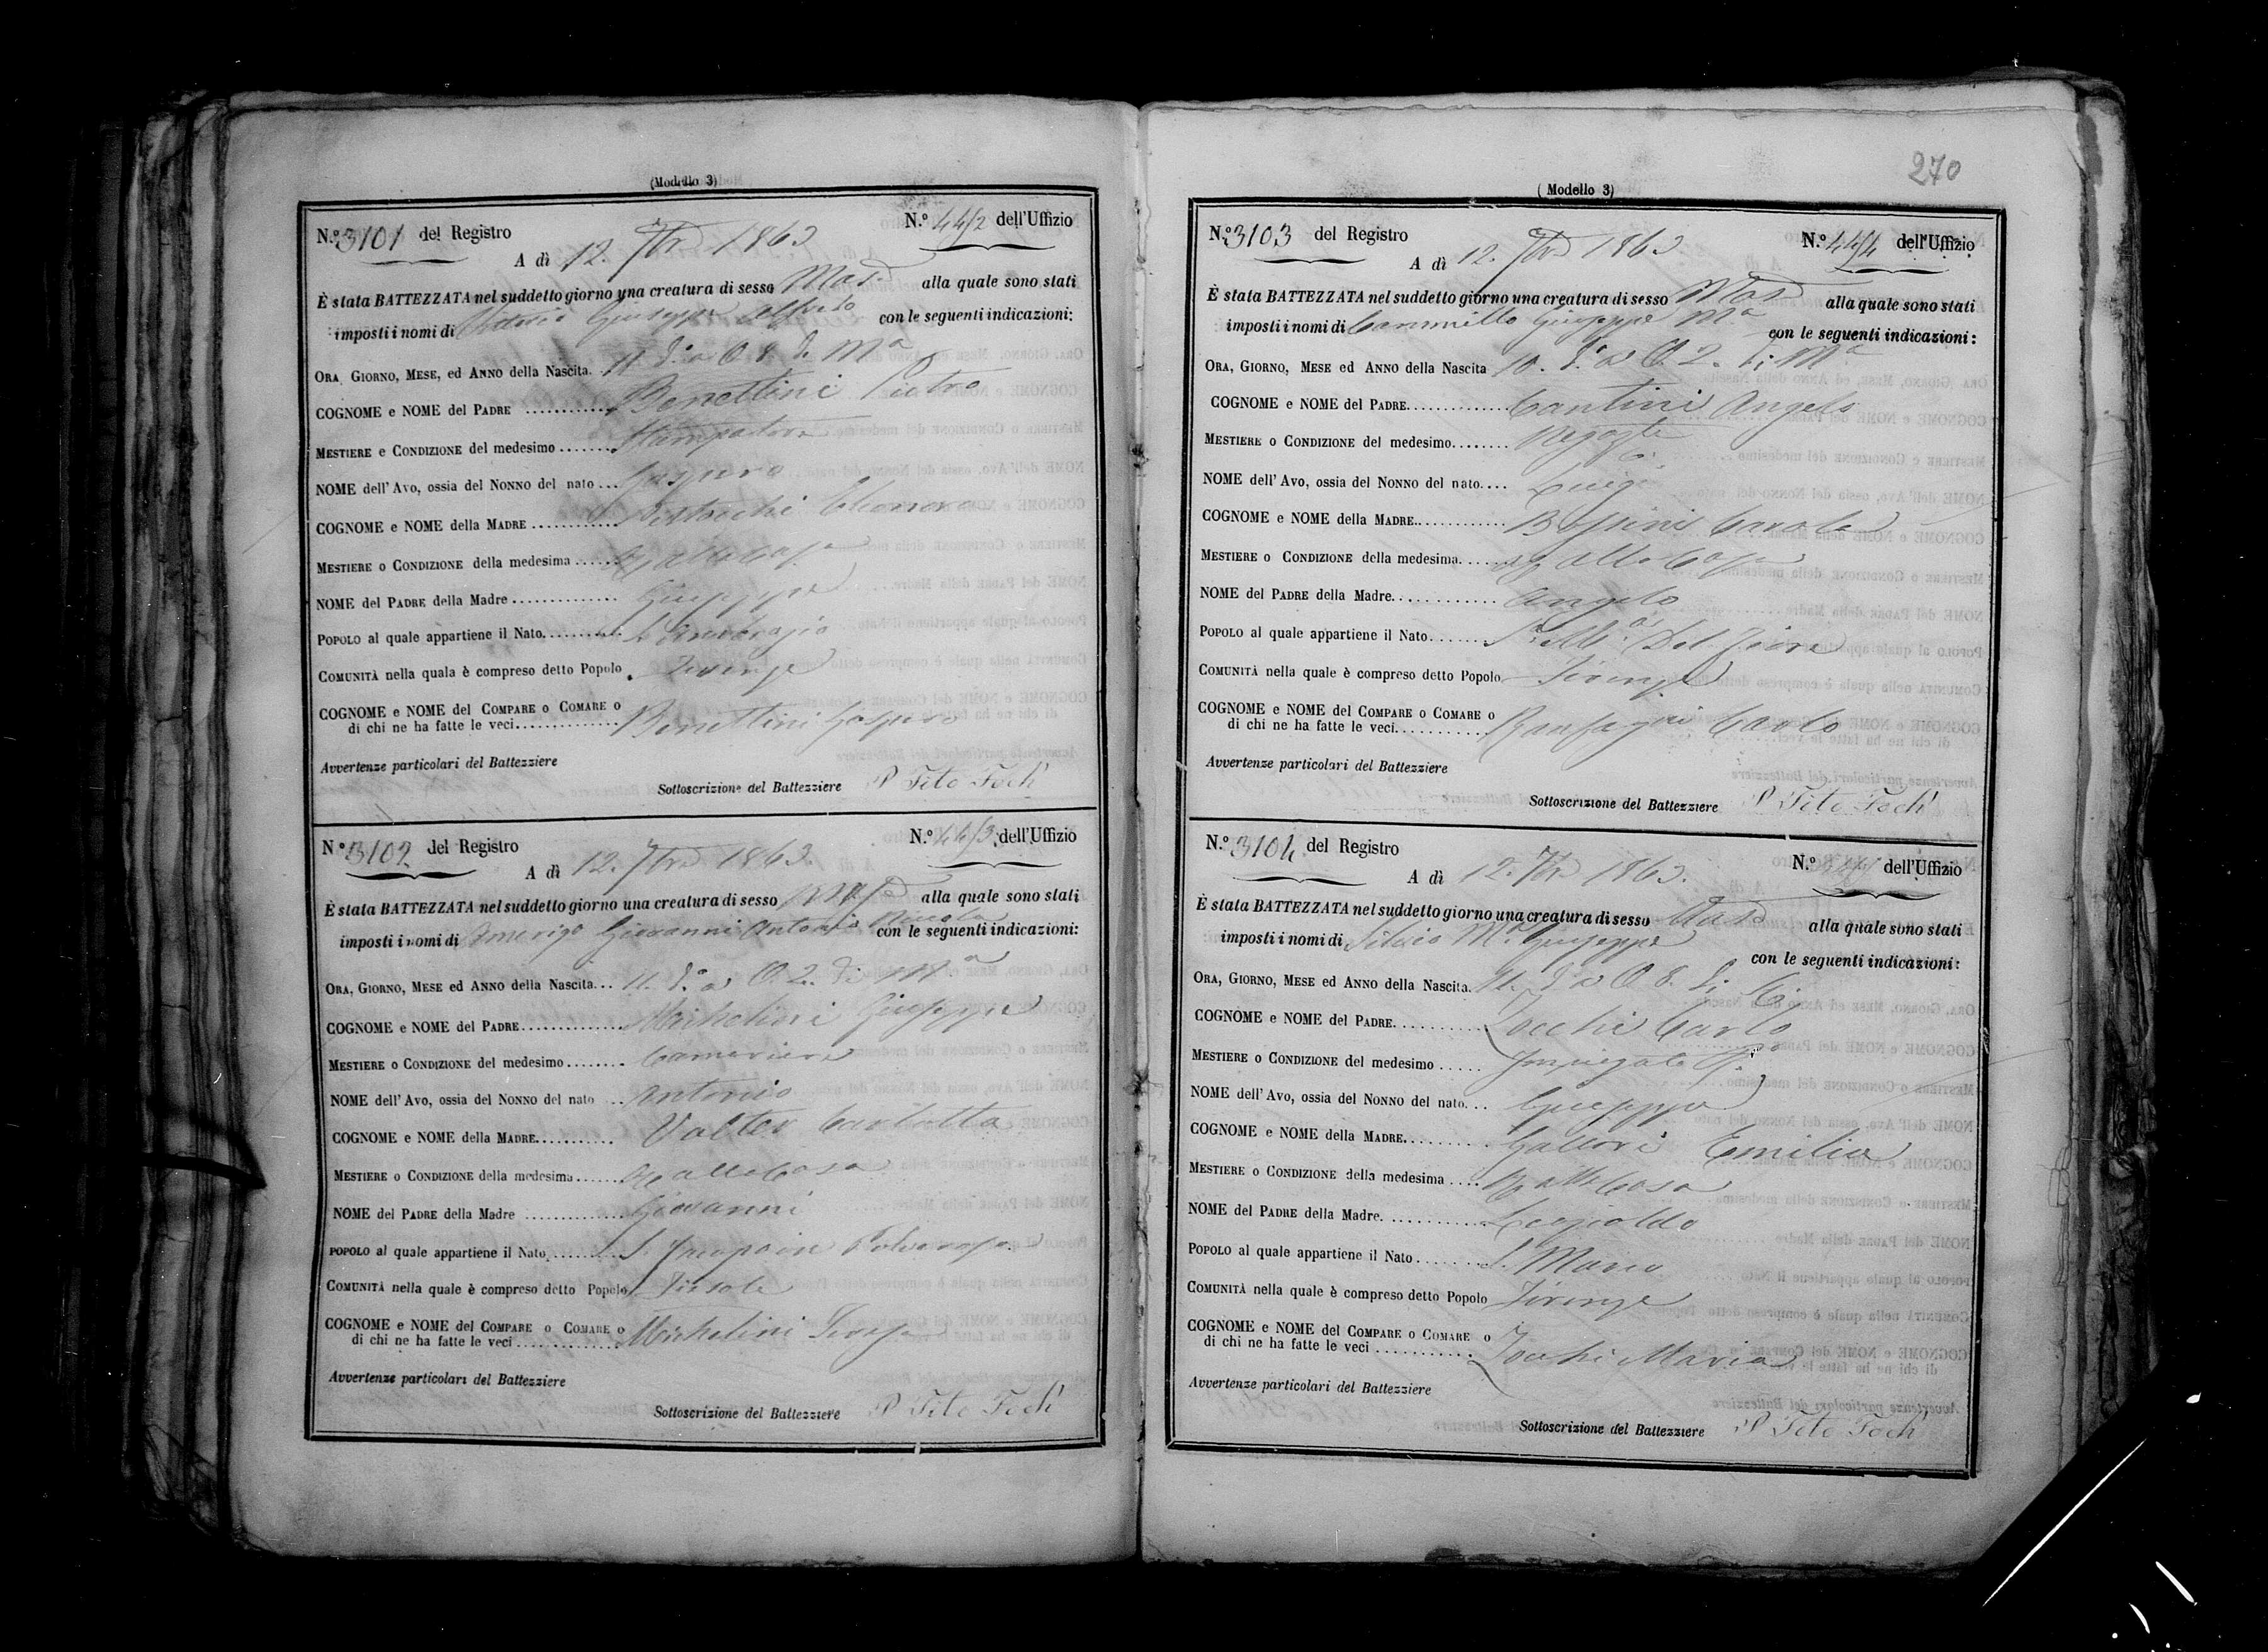 (Modello 3)
N.º 3101 del Registro
N.º 44/2 dell'Uffizio
A dì 12. 7bre 1863
È stata BATTEZZATA nel suddetto giorno una creatura di sesso Mas. alla quale sono stati
imposti i nomi di Giuseppe Alfredo con le seguenti indicazioni:
ORA, GIORNO, MESE, ed ANNO della Nascita. 11 do a O. 8. di Ma
COGNOME e NOME del PADRE ............ Benettini Pietro
MESTIERE e CONDIZIONE del medesimo ........ Stampatore
NOME dell' Avo, ossia del NONNO del nato ... Gaspero
COGNOME e NOME della MADRE ............ Eleonora
MESTIERE o CONDIZIONE della medesima ...... Atta Casa
NOME del PADRE della Madre .............. Giuseppe
POPOLO al quale appartiene il Nato.......... S. Ambrogio
COMUNITÀ nella quala è compreso detto Popolo . Firenze
COGNOME e NOME del COMPARE o COMARE o
di chi ne ha fatte le veci.............. Benettini Gaspero
Avvertenze particolari del Battezziere
Sottoscrizione del Battezziere P Tito Foch
N.º 3102 del Registro
N.º 44/3 dell'Uffizio
A dì 12. 7bre 1863.
È stata BATTEZZATA nel suddetto giorno una creatura di sesso Mas. alla quale sono stati
imposti i nomi di Amerigo Giovanni Antonio Nicola con le seguenti indicazioni:
ORA, GIORNO, MESE ed ANNO della Nascita... 11. do a O. 2. di Ma
COGNOME e NOME del PADRE.............. Michelini Giuseppe
MESTIERE o CONDIZIONE del medesimo........ Cameriere
NOME dell' Avo, ossia del NONNO del nato ... Antonio
COGNOME e NOME della MADRE........... Valter Carlotta
MESTIERE o CONDIZIONE della medesima....... Atta Casa
NOME del PADRE della Madre .............. Giovanni
POPOLO al quale appartiene il Nato .......... S. Jacopo in Polverosa
COMUNITÀ nella quale è compreso detto Popolo Fiesole
COGNOME e NOME del COMPARE o COMARE o
di chi ne ha fatte le veci .............. Michelini
Avvertenze particolari del Battezziere
Sottoscrizione del Battezziere P Tito Foch
270
(Modello 3)
N.º 3103 del Registro
N.º 44/4 dell'Uffizio
A dì 12. 7bre 1863
È stata BATTEZZATA nel suddetto giorno una creatura di sesso Mas. alla quale sono stati
imposti i nomi di Cammillo Giuseppe Ma con le seguenti indicazioni:
ORA, GIORNO, MESE ed ANNO della Nascita 10. do a O. 2. di Ma
COGNOME e NOME del PADRE.............. Cantini Angelo
MESTIERE o CONDIZIONE del medesimo........ Negozte
NOME dell' Avo, ossia del NONNO del nato.... Luigi
COGNOME e NOME della MADRE............. Carola
MESTIERE o CONDIZIONE della medesima...... Atta Casa
NOME del PADRE della Madre............. Angelo
POPOLO al quale appartiene il Nato........ Sa. Ma Del Fiore
COMUNITÀ nella quale è compreso detto Popolo Firenze
COGNOME e NOME del COMPARE o COMARE o
di chi ne ha fatte le veci............ Ranfagni Carlo
Avvertenze particolari del Battezziere
Sottoscrizione del Battezziere P Tito Foch
N.º 3104 del Registro
N.º dell'Uffizio
A dì 12. 7bre 1863.
È stata BATTEZZATA nel suddetto giorno una creatura di sesso Mas. alla quale sono stati
imposti i nomi di Silvio Ma Giuseppe con le seguenti indicazioni:
ORA, GIORNO, MESE ed ANNO della Nascita. 11. do a O. 8. di
COGNOME e NOME del PADRE.......... Zocchi Carlo
MESTIERE o CONDIZIONE del medesimo ..... Impiegato
NOME dell' Avo, ossia del NONNO del nato... Giuseppe
COGNOME e NOME della MADRE......... Gattori Emilia
MESTIERE o CONDIZIONE della medesima .... Atta Casa
NOME del PADRE della Madre. ........... Leopoldo
POPOLO al quale appartiene il Nato ........ S. Marco
COMUNITÀ nella quale è compreso detto Popolo Firenze
COGNOME e NOME del COMPARE o COMARE o
di chi ne ha fatte le veci ............ Zocchi Maria
Avvertenze particolari del Battezziere
Sottoscrizione del Battezziere P Tito Foch